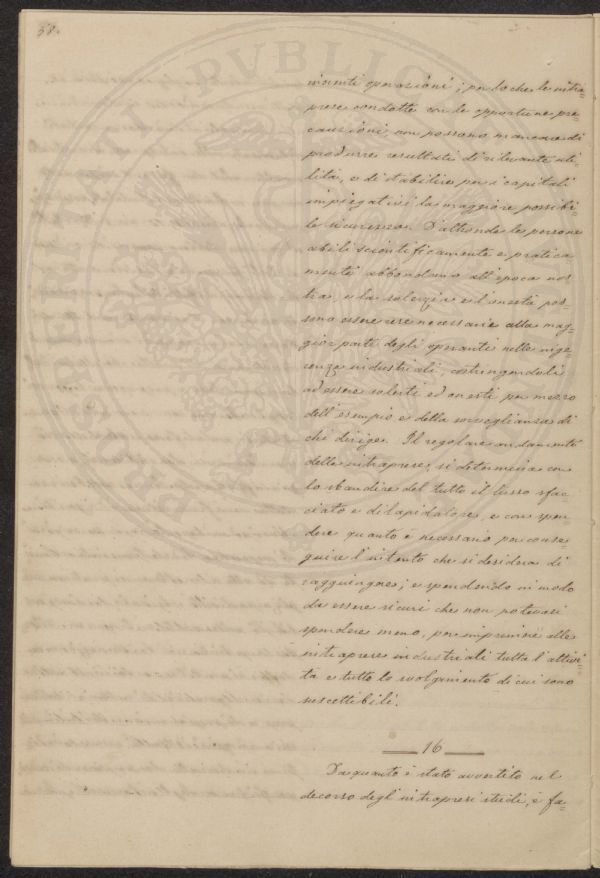 58.
inenti operazioni; per lo che le intra-
prese condotte con le opportune pre-
cauzioni, non possono mancare di
produrre resultati di rilevante uti-
lità, e di stabilire per i capitali
impiegativi la maggiore possibi-
le sicurezza. D'altronde le persone
abili scientificamente e pratica
mente abbondano all'epoca nos-
tra, e la solerzia e l'onestà pos-
sono essere rese necessarie alla mag-
gior parte degli operanti nelle inge-
renze industriali, costringendoli
ad essere solerti ed onesti per mezzo
dell'esempio e della sorveglianza di
chi dirige. Il regolare andamento
delle intraprese, si determina con
lo sbandire del tutto il lusso sfac-
ciato e dilapidatore, e con spen-
dere quanto è necessario per conse-
guire l'intento che si desidera di
raggiungere; e spendendo in modo
da essere sicuri che non potevasi
spendere meno, per imprimere alle
intraprese industriali tutta l'attivi-
tà e tutto lo svolgimento di cui sono
suscettibili.
16
Da quanto è stato avvertito nel
decorso degl'intrapresi studi, è fa-
PROSPERITATI PVBLICAE